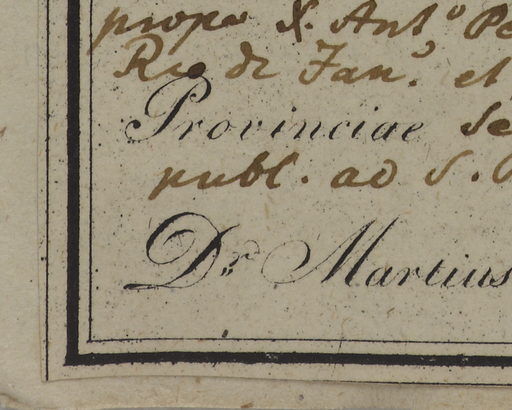 prope S. Ant.º
Rio de Jan.º et
Provinciae Se
publ. ad S.
Dr. Martius